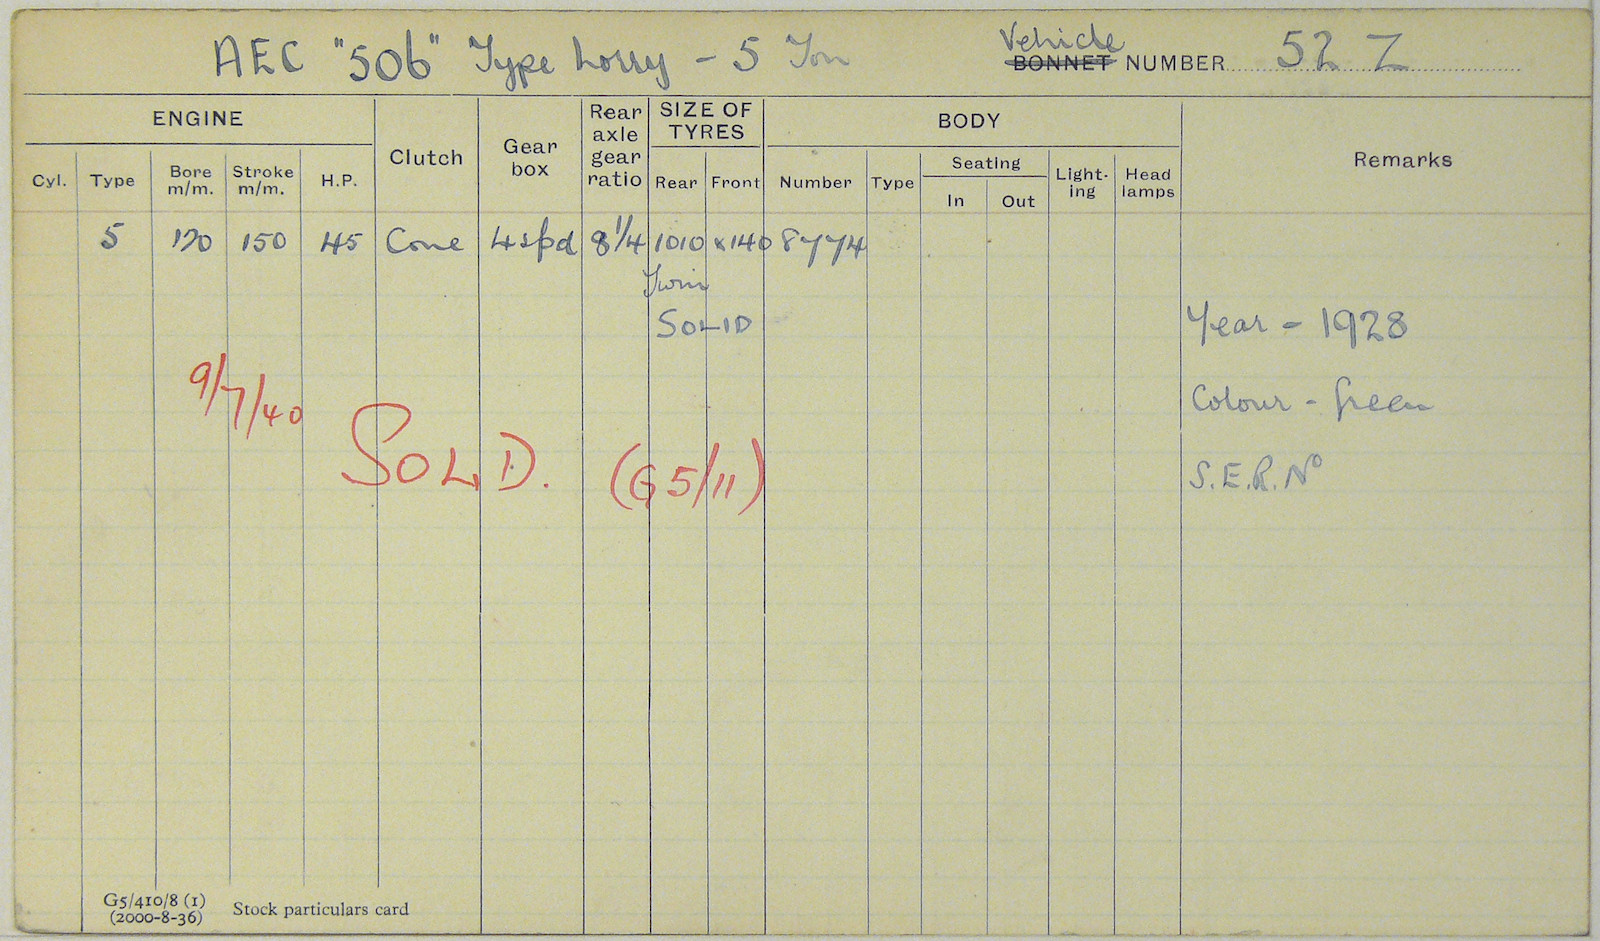 AEC "506" Type Lorry - 5 Ton
Vehicle
BONNET NUMBER 52 Z
ENGINE
Cyl.
Type
Bore
m/m.
Stroke
m/m.
H.P.
Clutch
Gear
box
Rear
axle
gear
ratio
SIZE OF
TYRES
Rear
Front
BODY
Number
Type
Seating
In
Out
Light-
ing
Head
lamps
Remarks
5 120 150 45 Cone 4 spd 8 1/4 1010 x 140 8774
Twin
SOLID
Year - 1928
Colour - Green
S.E.R. No
9/7/40
SOLD. (G5/11)
G5/410/8 (1)
(2000-8-36)
Stock particulars card